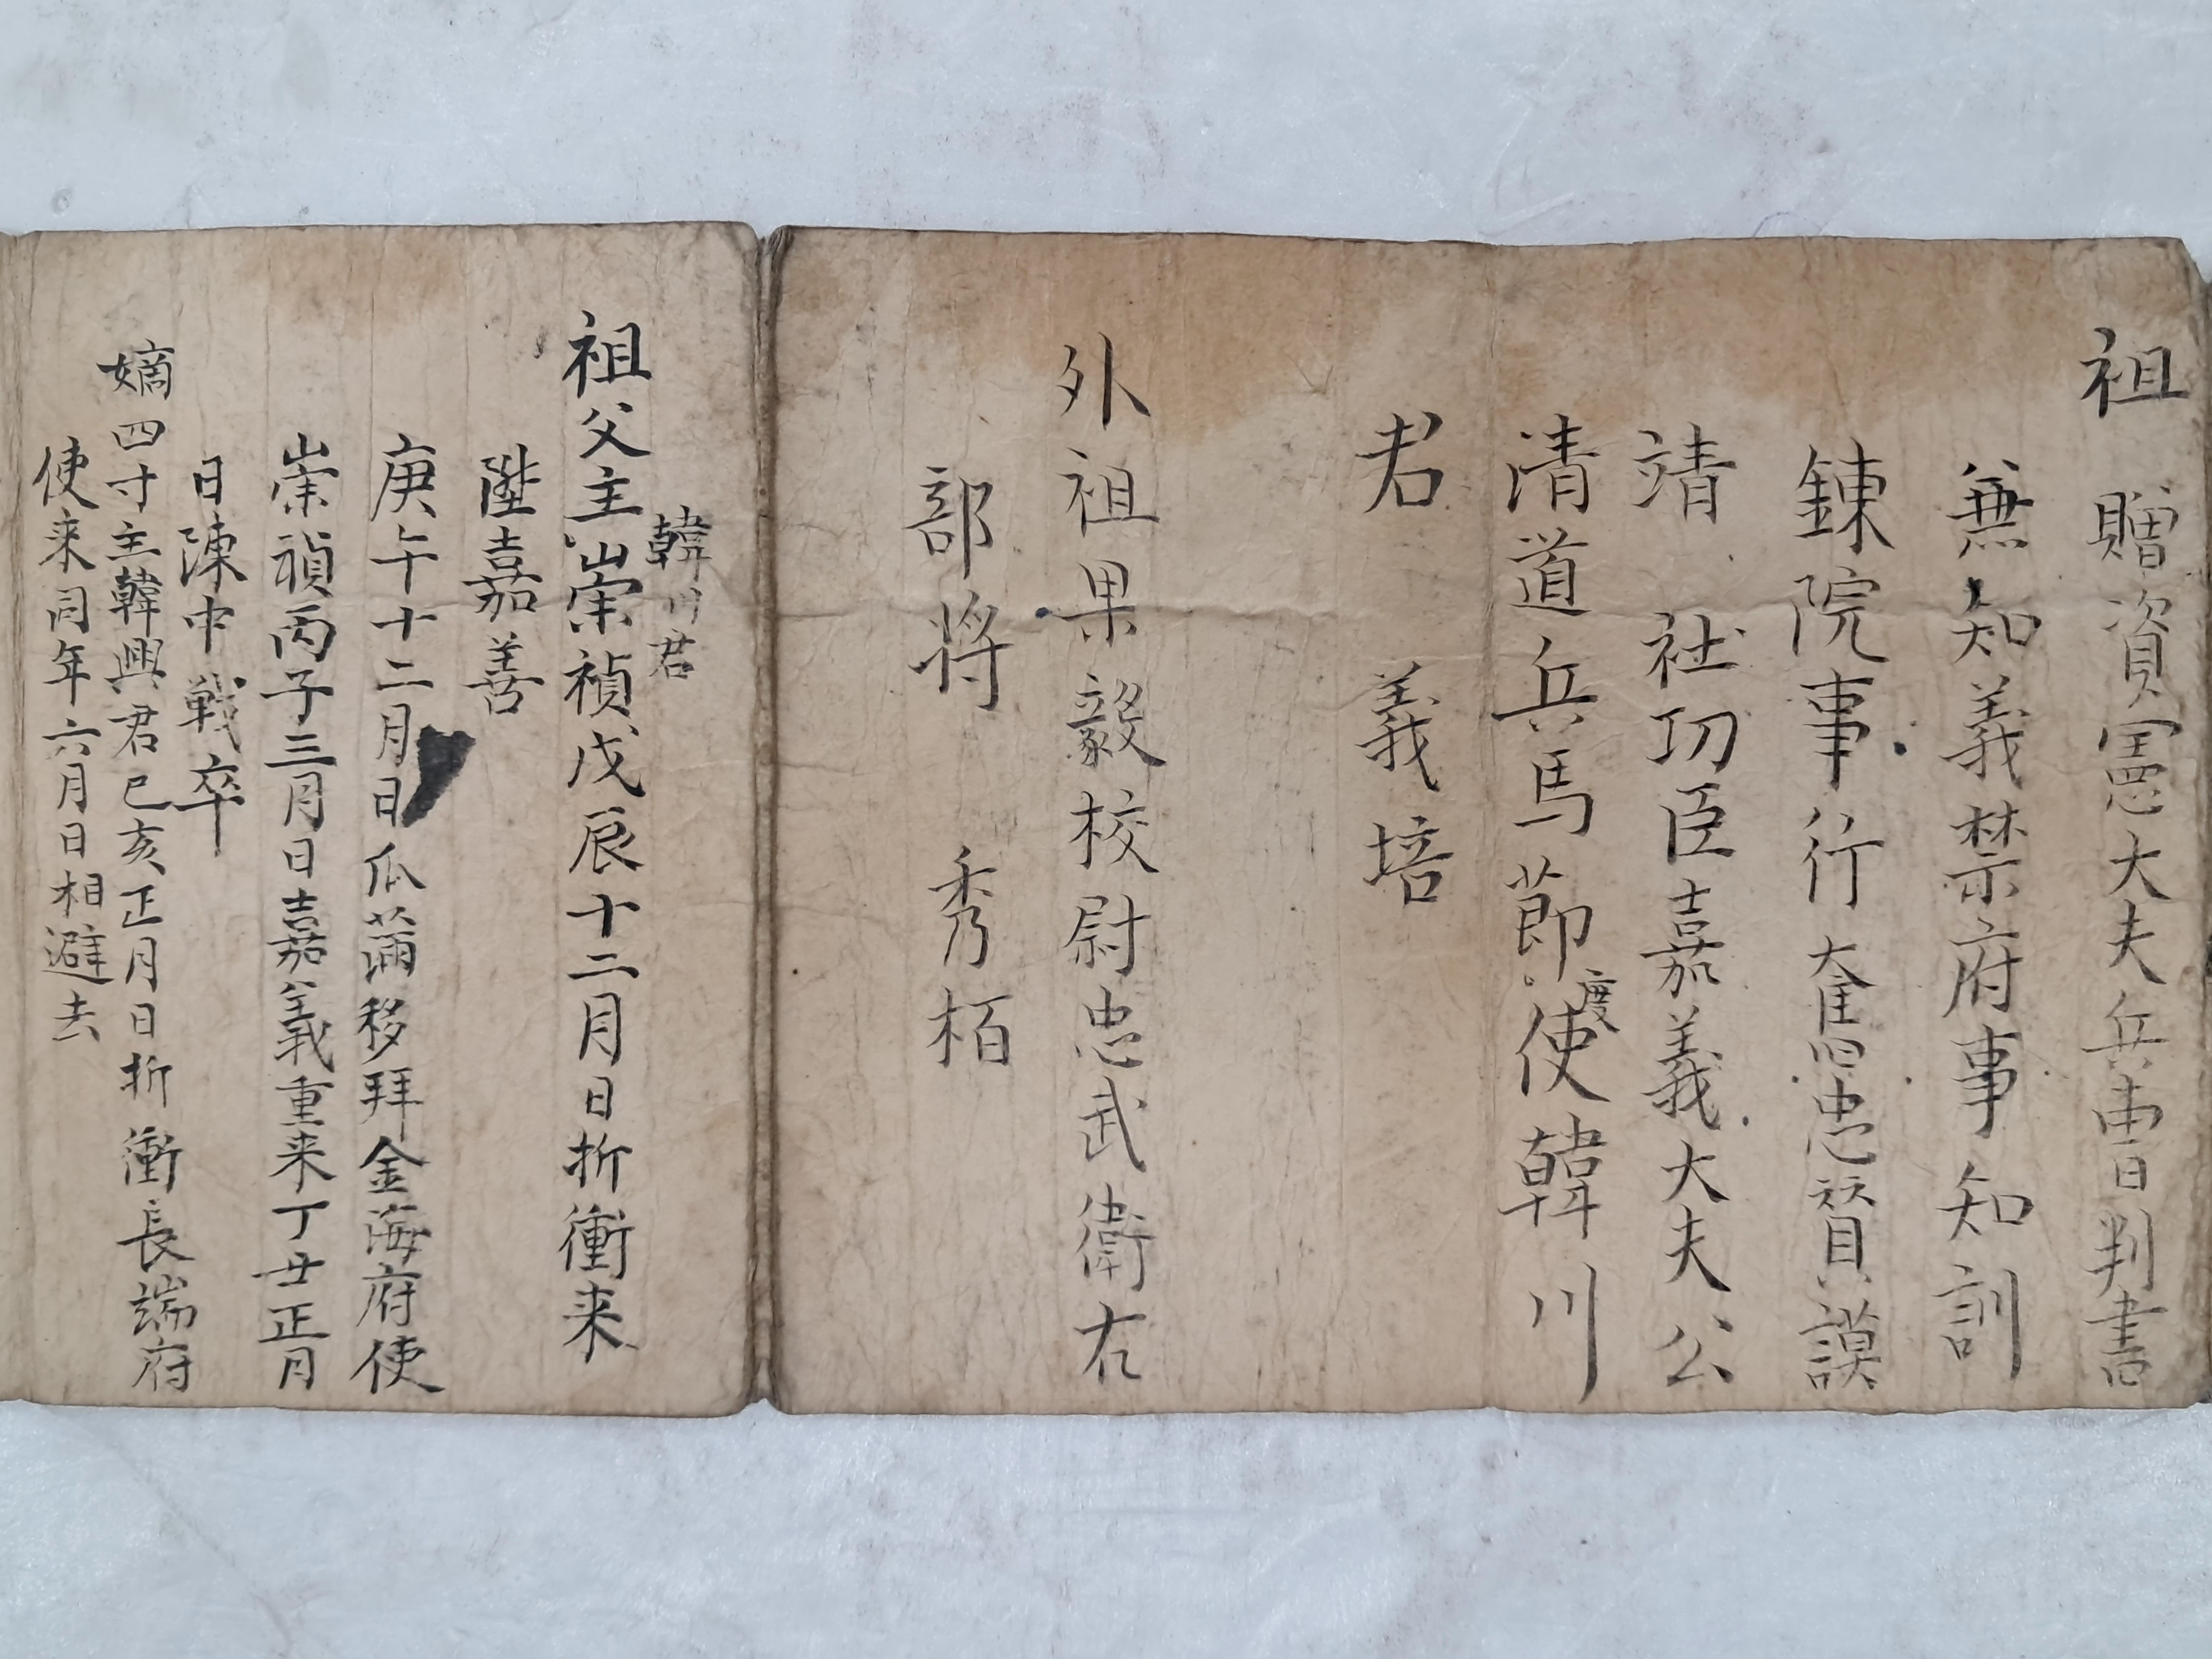 祖 贈資憲大夫兵曺判書
兼知義禁府事知訓
鍊院事行奮忠賛謨
靖 社功臣嘉義大夫公
清道兵馬節度使韓川
君 義培
外祖果毅校尉忠武衛右
部将 秀栢
韓川君
祖父主崇禎戊辰十二月日折衝来
陞嘉善
庚午十二月日瓜蒲移拜金海府使
崇禎丙子三月日嘉義重来丁丑正月
日陳中戦卒
嫡四寸主韓興君己亥正月日折衝長端府
使来同年六月日相避去